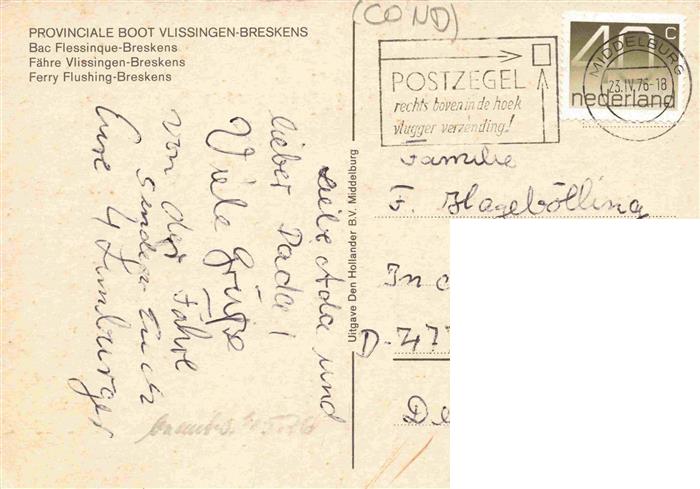 PROVINCIALE BOOT VLISSINGEN-BRESKENS
Bac Flessinque-Breskens
Fähre Vlissingen-Breskens
Ferry Flushing-Breskens
(COND)
POSTZEGEL
rechts boven in de hoek
vlugger verzending!
40 c
nederland
MIDDELBURG
23.IV.76-18
Liebe Ada und
lieber Pada!
Viele Grüße
von der Fähre
senden Euch
Eure 4 Limburger
Uitgave Den Hollander B.V. Middelburg
Familie
F. Hagebölling
In d
D-477
De